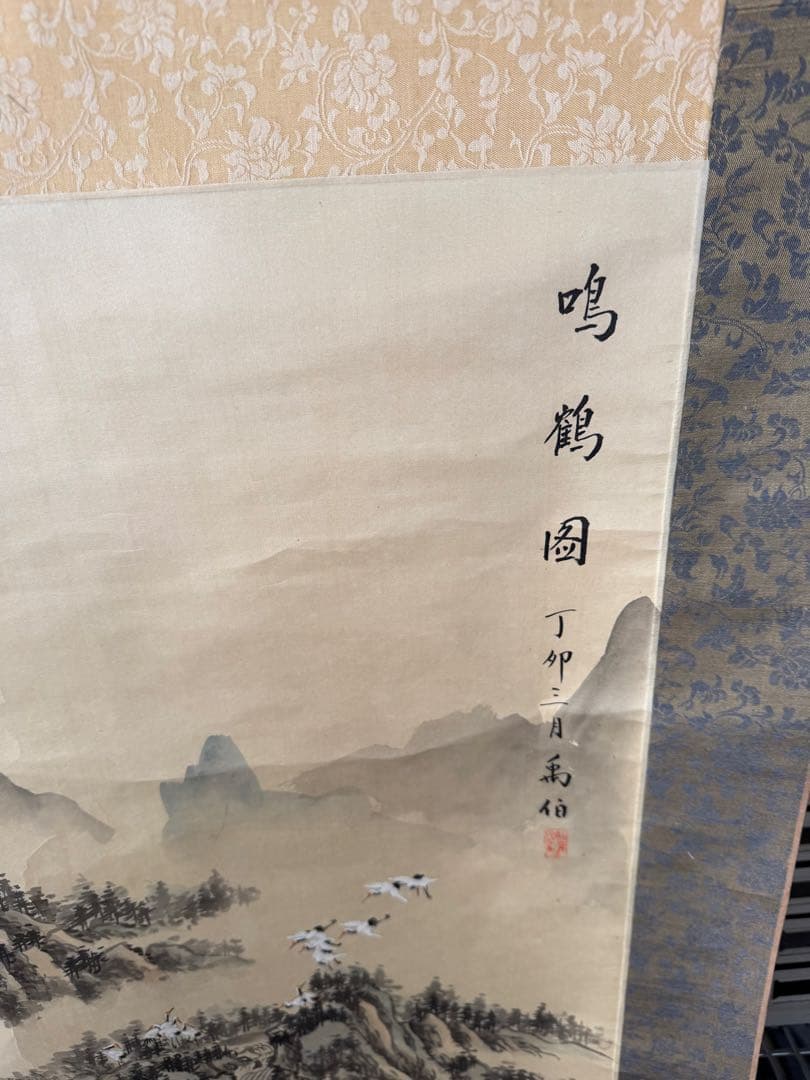 鳴鶴図
丁卯三月禹伯